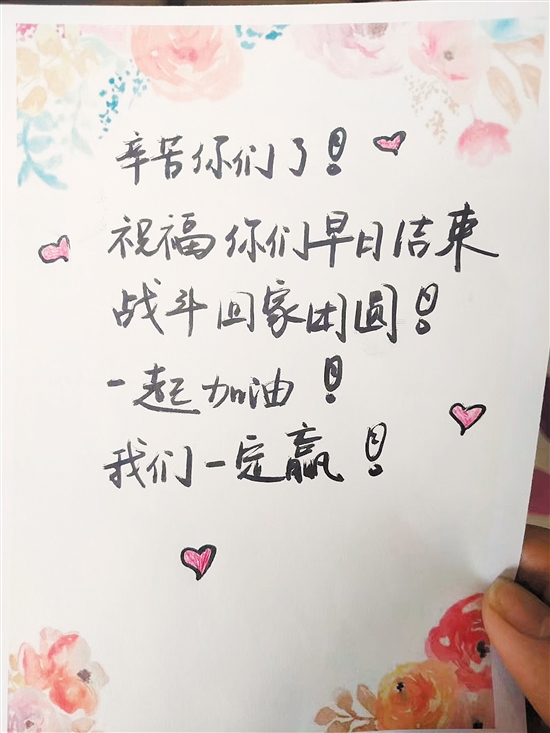 辛苦你们了!
祝福你们早日结束
战斗回家团圆!
一起加油!
我们一定赢!